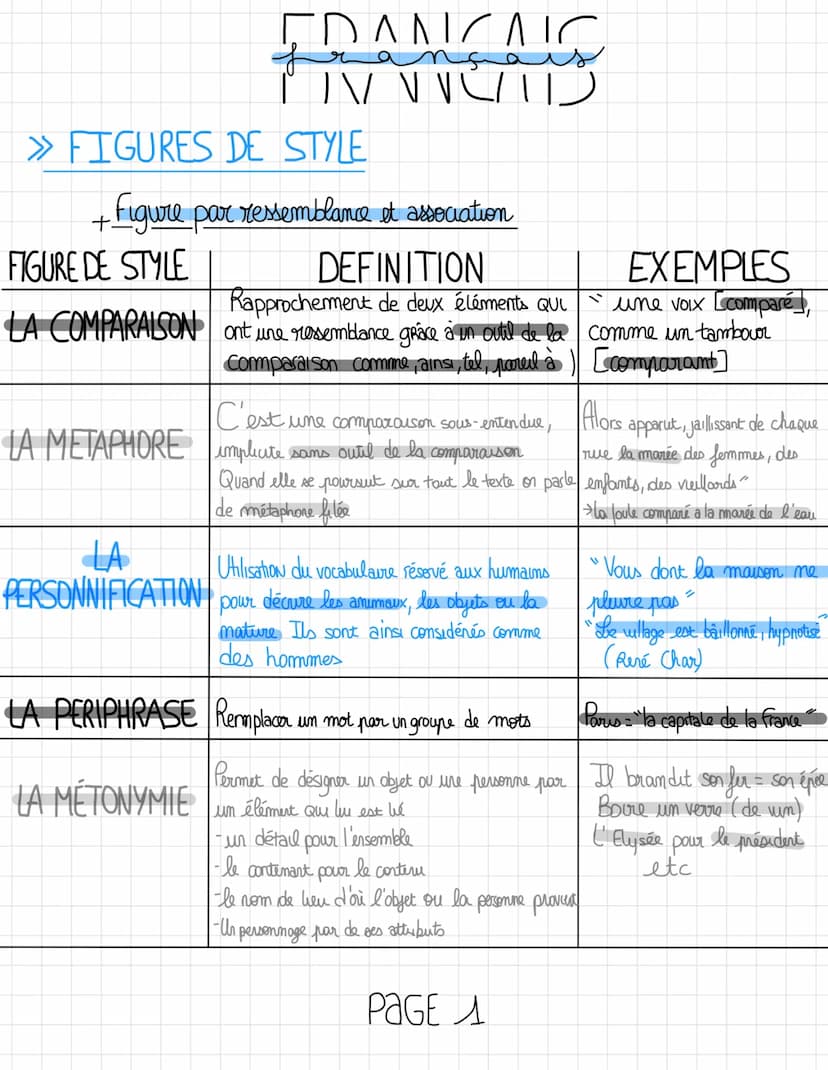 FRANÇAIS
français
» FIGURES DE STYLE
+ Figure par ressemblance et association
FIGURE DE STYLE
DEFINITION
EXEMPLES
LA COMPARAISON
Rapprochement de deux éléments qui
ont une ressemblance grâce à un outil de la
comparaison comme, ainsi, tel, pareil à )
" une voix [comparé],
comme un tambour
[comparant]
LA METAPHORE
C'est une comparaison sous-entendue,
implicite sans outil de la comparaison
Quand elle se poursuit sur tout le texte on parle
de métaphore filée
Alors apparut, jaillissant de chaque
rue la marée des femmes, des
enfants, des vieillards"
→la foule comparé a la marée de l'eau
LA
PERSONNIFICATION
Utilisation du vocabulaire réservé aux humains
pour décrire les animaux, les objets ou la
nature Ils sont ainsi considérés comme
des hommes
"Vous dont la maison ne
pleure pas"
"Le village est bâillonné, hypnotisé"
(René Char)
LA PERIPHRASE
Remplacer un mot par un groupe de mots
Paris = "la capitale de la France"
LA MÉTONYMIE
Permet de désigner un objet ou une personne par
un élément qui lui est lié
-un détail pour l'ensemble
-le contenant pour le contenu
-le nom de lieu d'où l'objet ou la personne provient
-Un personnage par de ses attributs
Il brandit son fer = son épée
Boire un verre (de vin)
L'Elysée pour le président
etc
PAGE 1